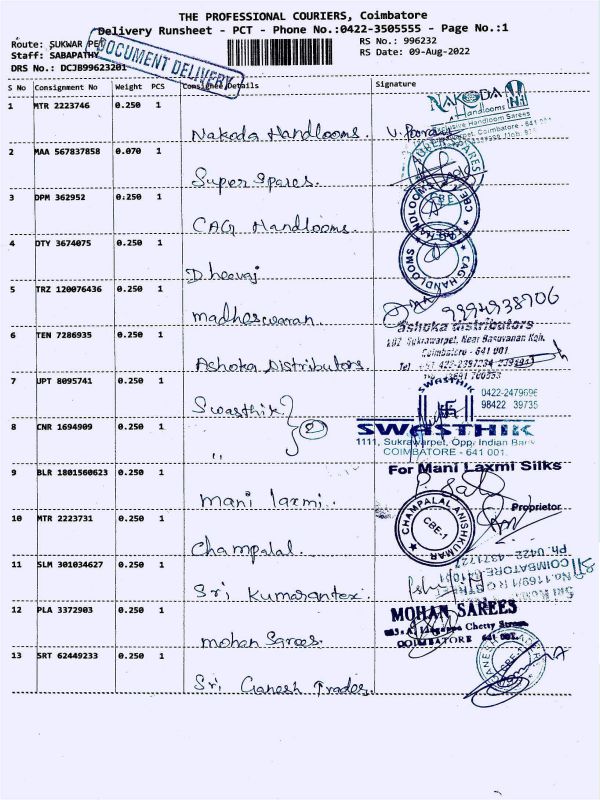 THE PROFESSIONAL COURIERS, Coimbatore
Delivery Runsheet - PCT - Phone No.:0422-3505555 - Page No.:1
Route: SUKWAR PET
RS No.: 996232
Staff: SABAPATHY
RS Date: 09-Aug-2022
DRS No.: DCJB99623201
DOCUMENT DELIVERY
S No Consignment No Weight PCS Consignee Details Signature
1 MTR 2223746 0.250 1
Nakoda Handlooms.
NAKODA
Handlooms
Handloom Sarees
Coimbatore - 641 001
2 MAA 567837858 0.070 1
Super Spares.
3 DPM 362952 0.250 1
CAG Handlooms
CAG HANDLOOMS CBE
4 DTY 3674075 0.250 1
Dheeraj
CAG HANDLOOMS
5 TRZ 120076436 0.250 1
madheswaran.
9994938706
6 TEN 7286935 1 0.250
Ashoka Distributors.
ashoka distributors
Sukrawarpet, Near Basuvanan Koh.
Coimbatore - 641 001
7 UPT 8095741 0.250 1
Swasthik
2
SWASTHIK
0422-2479696
98422 39735
8 CNR 1694909 0.250 1
"
SWASTHIK
1111, Sukrawarpet, Opp. Indian Bank
COIMBATORE - 641 001.
9 BLR 1801560623 0.250 1
mani laxmi.
For Mani Laxmi Silks
Proprietor
10 MTR 2223731 0.250 1
Champalal.
CHAMPALAL ANISHKUMAR
CBE-1
11 SLM 301034627 0.250 1
Sri Kumarantex.
Ph. 0422 - 4371727
COIMBATORE
12 PLA 3372903 0.250 1
mohan Sarees.
MOHAN SAREES
Lingappa Chetty Street
COIMBATORE 641 001.
13 SRT 62449233 0.250 1
Sri Ganesh Trades.
GANESH
CBE-1